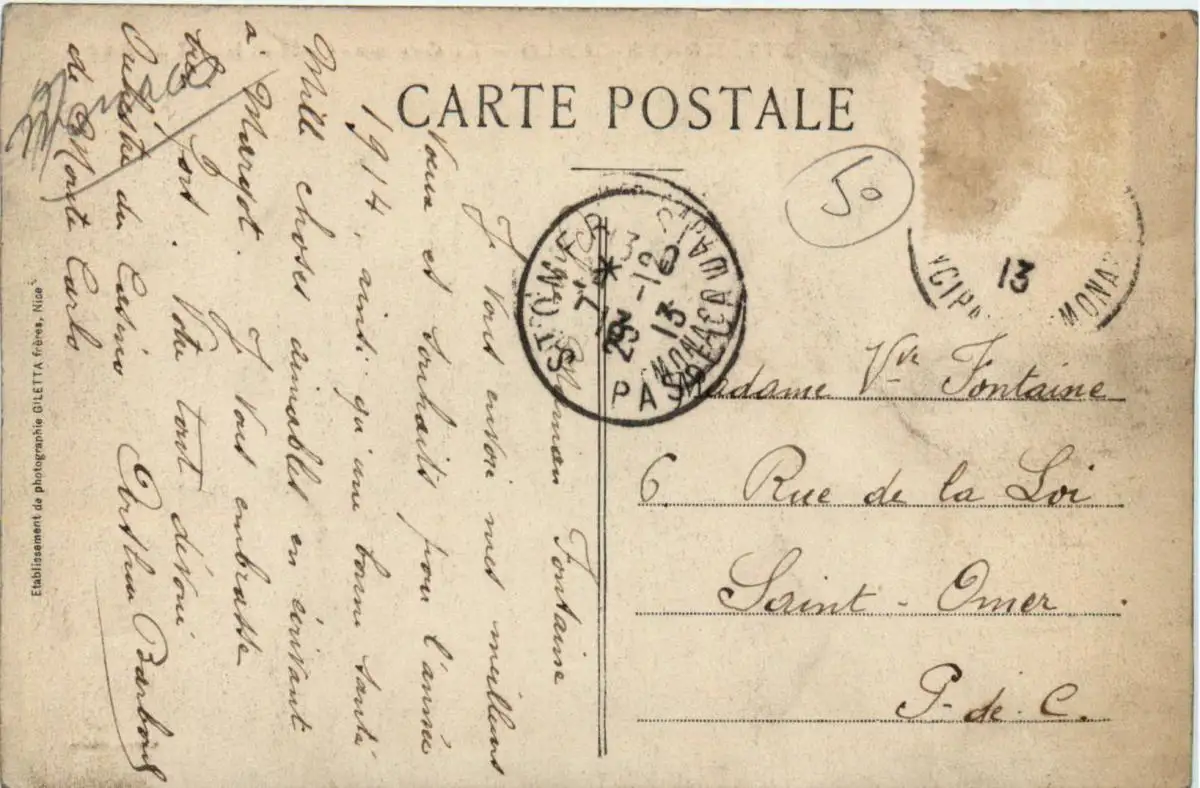 CARTE POSTALE
50
13
MONA
ST OMER
7
29-12
13
PAS DE
MONACO
Madame Vve Fontaine
6 Rue de la Loi
Saint-Omer
P-de-C.
Maman Fontaine
Je vous envoie mes meilleurs
Vœux et souhaits pour l'année
1914, ainsi qu'une bonne santé
Mill choses aimables en écrivant
a Margot. Je vous embrasse
bien fort. Votre tout dévoué
Arthur
du Casino
de Monte Carlo
Etablissement de photographie GILETTA frères, Nice